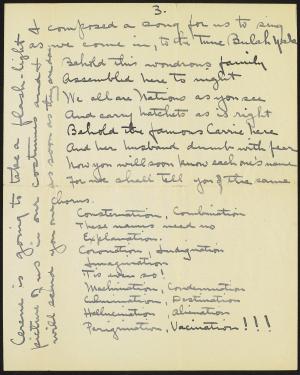 3.
I composed a song for us to sing
as we come in, to the tune Bulah Yale
Behold this wondrous family
Assembled here to night
We all are Nations as you see
And carry hatchets as is right
Behold the famous Carrie here
And her husband dumb with fear
How you will soon know each one's name
For we shall tell you of the same
Chorus.
Consternation, Combination
These names need no
Explanation.
Coronation, Indignation
Imagination
Tis even so!
Machination, Condemnation
Culmination, Destination
Hallucination, Alienation
Perigrination, Vaccination!!!
is going to take a flash-light
picture of us in our costumes and I
will send you one as soon as they are done